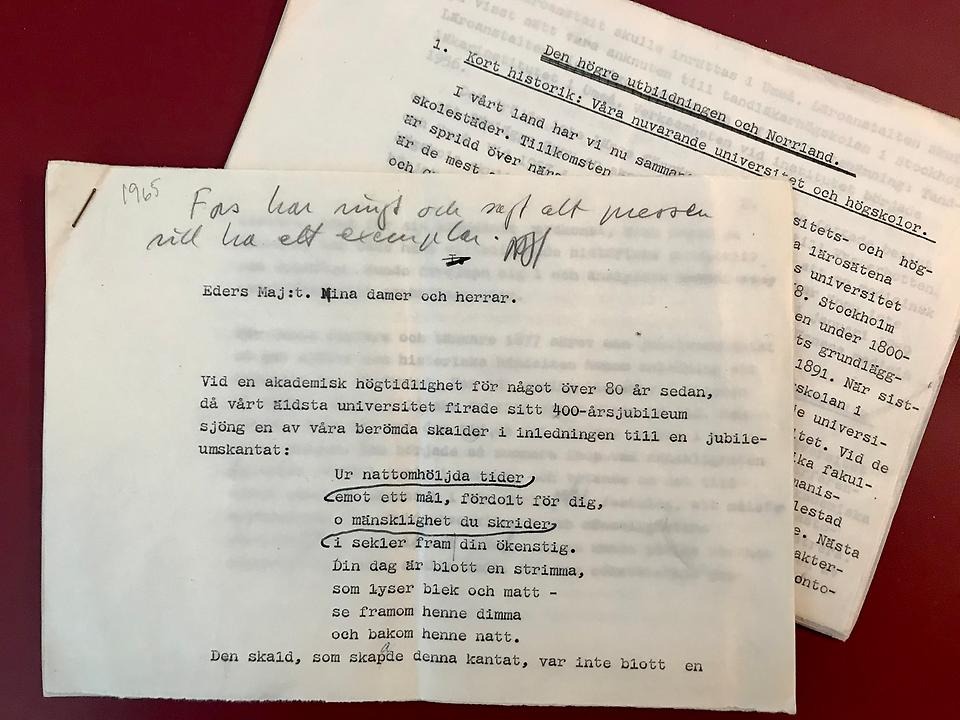 1965
Fors har ringt och sagt att pressen
vill ha ett exemplar.
Eders Maj:t. Mina damer och herrar.
Vid en akademisk högtidlighet för något över 80 år sedan,
då vårt äldsta universitet firade sitt 400-årsjubileum
sjöng en av våra berömda skalder i inledningen till en jubile-
umskantat:
Ur nattomhöljda tider
emot ett mål, fördolt för dig,
o mänsklighet du skrider,
i sekler fram din ökenstig.
Din dag är blott en strimma,
som lyser blek och matt -
se framom henne dimma
och bakom henne natt.
Den skald, som skapade denna kantat, var inte blott en
Den högre utbildningen och Norrland.
1. Kort historik: Våra nuvarande universitet och högskolor.
I vårt land har vi nu samma
skolestäder. Tillkomsten
är spridd över när
är de mest
och
sitets- och hög-
a lärosätena
s universitet
8. Stockholm
en under 1800-
ts grundlägg-
1891. När sist-
skolan i
de universi-
ltet. Vid de
ka fakul-
manis-
lestad
e. Nästa
akter-
onto-